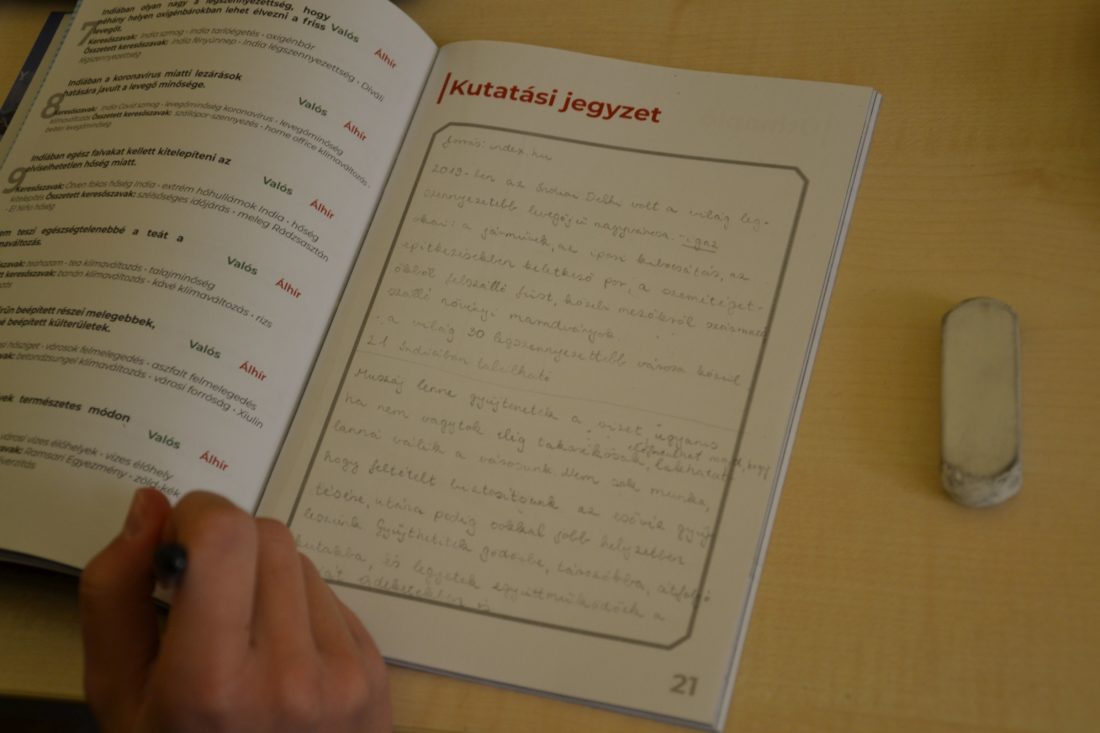 Indiában olyan nagy a légszennyezettség, hogy
néhány helyen oxigénbárokban lehet élvezni a friss
levegőt.
Valós
Álhír
7
Keresőszavak: india szmog • india tarlóégetés • oxigénbár
Összetett keresőszavak: india fényünnep • india légszennyezettség • Diváli
légszennyezettség
Indiában a koronavírus miatti lezárások
hatására javult a levegő minősége.
Valós
Álhír
8
Keresőszavak: india Covid szmog • levegőminőség koronavírus • levegőminőség
klímaváltozás Összetett keresőszavak: szállópor-szennyezés • home office klímaváltozás •
beltéri levegőminőség
Indiában egész falvakat kellett kitelepíteni az
elviselhetetlen hőség miatt.
Valós
Álhír
9
Keresőszavak: Ötven fokos hőség India • extrém hőhullámok India • hőség
kitelepítés Összetett keresőszavak: szélsőséges időjárás • meleg Rádzsasztán
• El Niño hőség
teszi egészségtelenebbé a teát a
Valós
Álhír
teaházam • tea klímaváltozás • talajminőség
banán klímaváltozás • kávé klímaváltozás • rizs
beépített részei melegebbek,
beépített külterületek.
Valós
Álhír
hősziget • városok felmelegedés • aszfalt felmelegedés
betondzsungel klímaváltozás • városi forróság • Xiulin
természetes módon
Valós
Álhír
városi vizes élőhelyek • vizes élőhely
Ramsari Egyezmény • zöld-kék
Kutatási jegyzet
forrás: index.hu
2019-ben az indiai Delhi volt a világ leg-
szennyezettebb levegőjű nagyvárosa. - igaz
okai: a járművek, az ipari kibocsátás, az
építkezésekben keletkező por, a szemétéget-
ésből felszálló füst, közeli mezőkről származó
szálló növényi maradványok.
• a világ 30 legszennyezettebb városa közül
21 Indiában található
Muszáj lenne gyűjtenetek a vizet ugyanis
ha nem vagytok elég takarékosak, előfordulhat majd, hogy lakhatat-
lanná válik a városunk. Nem sok munka,
hogy feltételt biztosítsunk az esővíz gyűj-
tésére, utána pedig sokkal jobb helyzetben
leszünk. Gyűjthetitek gödörbe, tározókba,
kutakba, és legyetek együttműködőek a
érdeketekben is
21